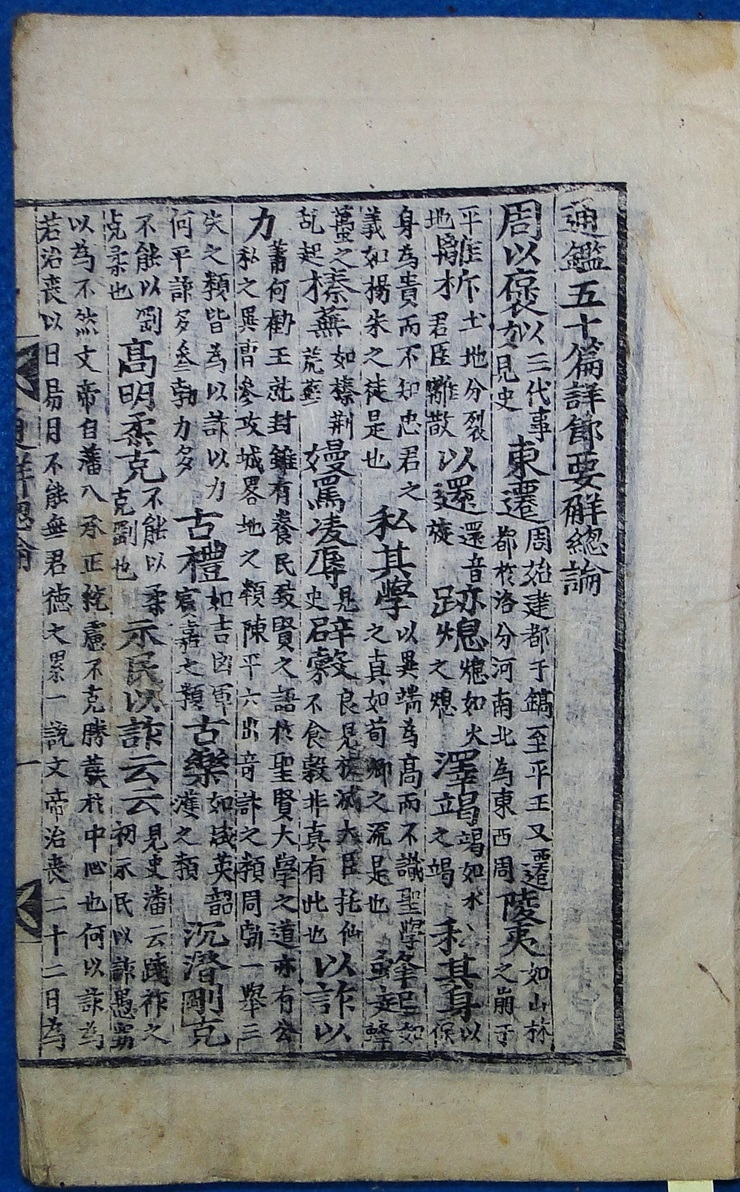 通鑑五十篇詳節要觧總論
周以褒姒三代事見史東遷周始建都于鎬至平王又遷都於洛分河南北為東西周陵夷如山林之崩于
平地離析土地分裂君臣離散以還還音旋亦熄熄如火之熄澤竭竭如水之竭私其身以
身為貴而不知忠君之義如楊朱之徒是也私其學以異端為高而不識聖學之真如荀卿之流是也蜂起如
蠭之起榛蕪如榛荊荒蕪嫚罵凌辱見史辟糓良見族滅大臣托仙不食糓非真有此也以詐以
力蕭何勸王就封雖有養民致賢之語於聖賢大學之道亦有公私之異曹參攻城畧地之類陳平六出奇計之類周勃一舉三
失之類皆為以詐以力何平謀多參勃力多古禮如吉凶軍賓嘉之類古樂如咸英韶濩之類沉潜剛克
不能以剛克柔也高明柔克不能以柔克剛也示民以詐云云見史潘云踐祚之初示民以詐愚要
以為不然文帝自藩入承正統慮不克勝藏於中心也何以詐為
若治喪以日易月不能無君德之累一說文帝治喪二十二日為
通詳總論
一